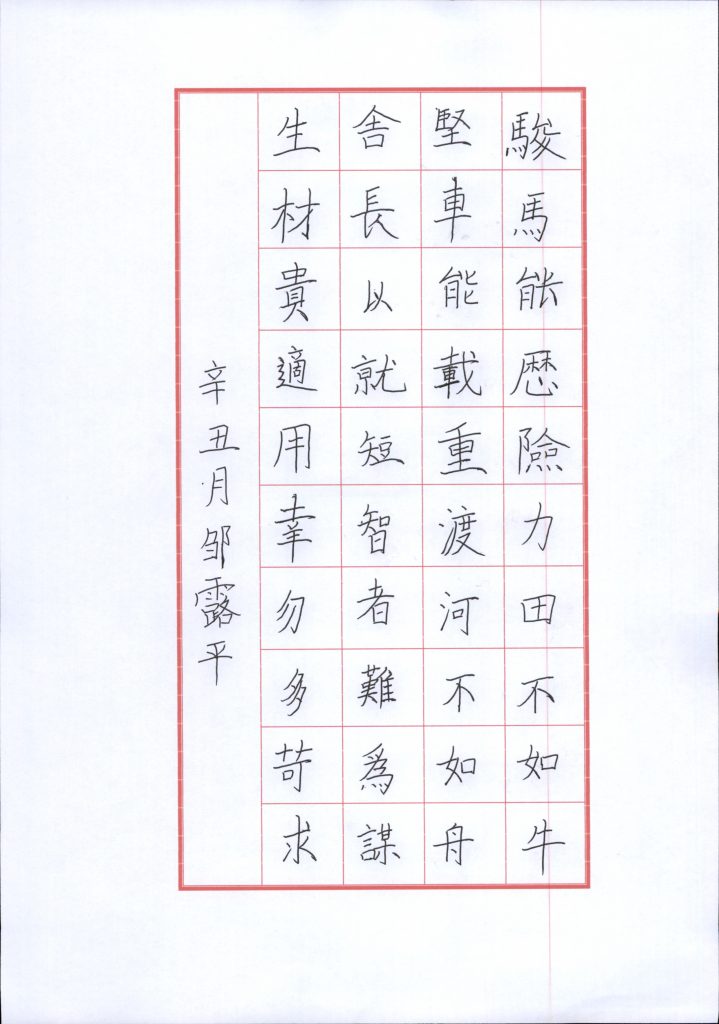 駿馬能歷險力田不如牛
堅車能載重渡河不如舟
舍長以就短智者難為謀
生材貴適用幸勿多苛求
辛丑月邹露平